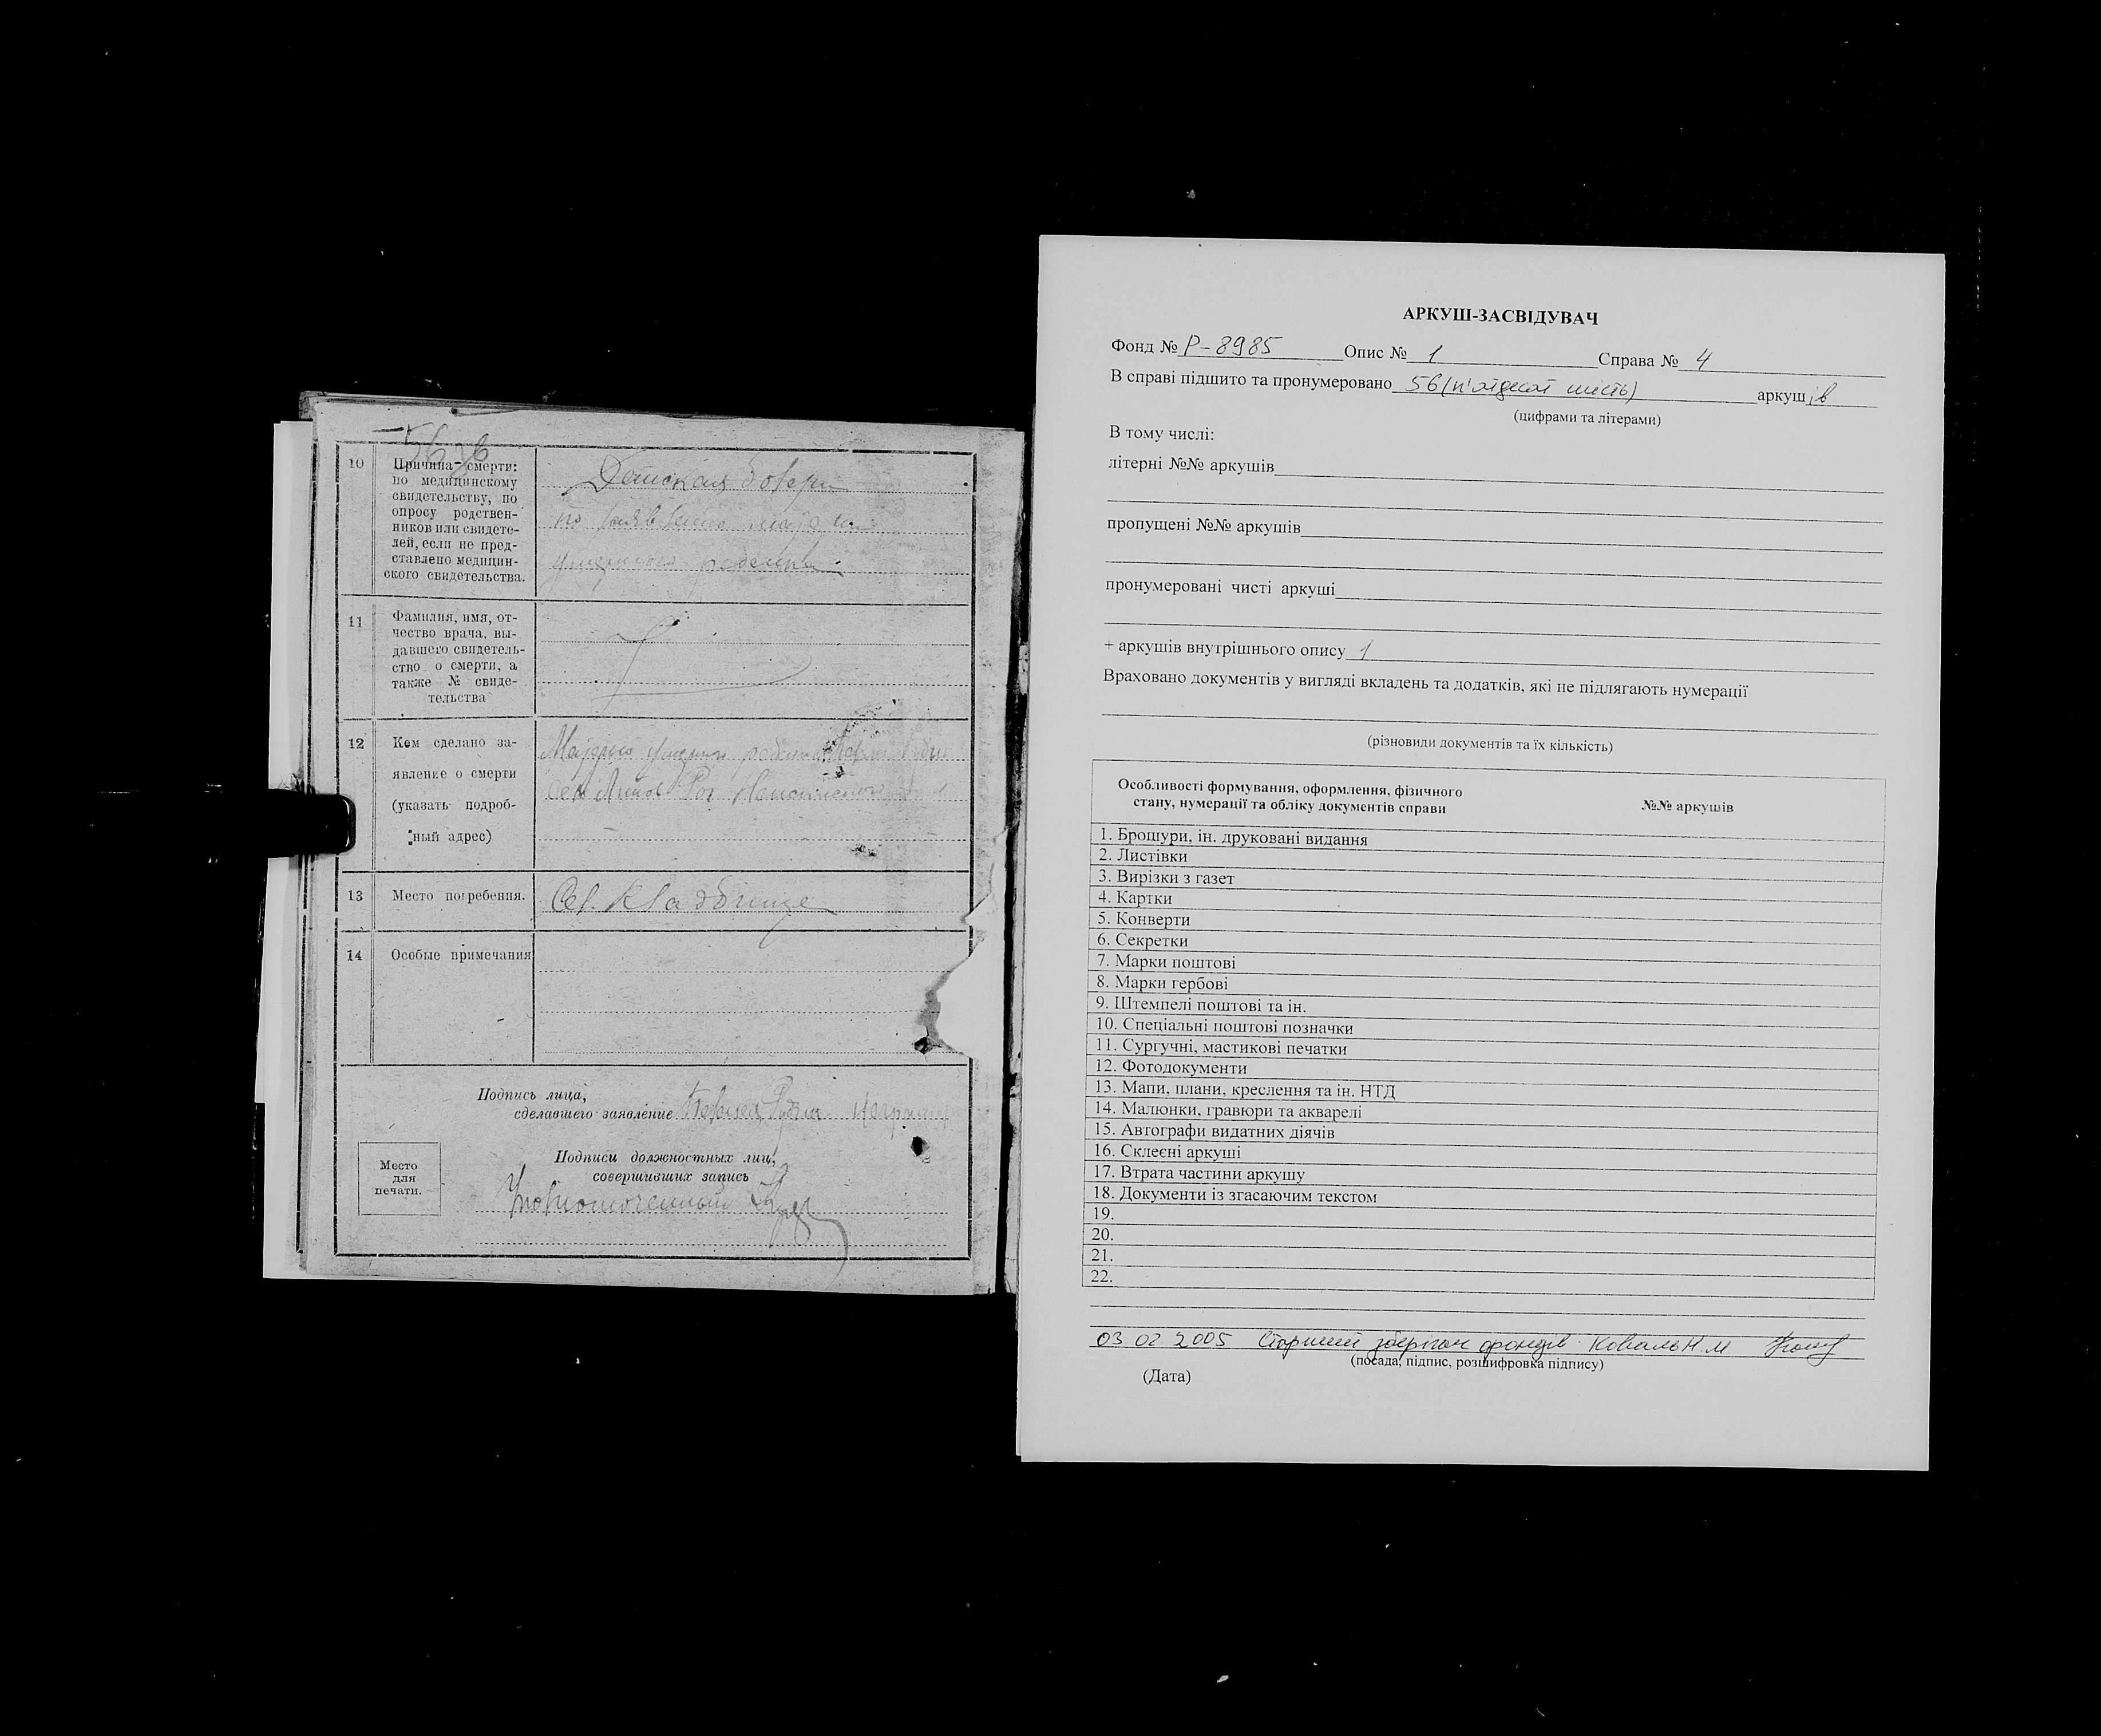 56 зв
10
Причина смерти:
по медицинскому
свидетельству, по
опросу родствен-
ников или свидете-
лей, если не пред-
ставлено медицин-
ского свидетельства.
Детская
по
умершого
11
Фамилия, имя, от-
чество врача, вы-
давшего свидетель-
ство о смерти, а
также № свиде-
тельства
12
Кем сделано за-
явление о смерти
(указать подроб-
ный адрес)
Рог
13
Место погребения.
Сел. Кладбище
14
Особые примечания
Подпись лица,
сделавшего заявление
Место
для
печати.
Подписи должностных лиц,
совершивших запись
Уполномоченный
АРКУШ-ЗАСВІДУВАЧ
Фонд № Р-8985 Опис № 1 Справа № 4
В справі підшито та пронумеровано 56 (п'ятдесят шість) аркушів
(цифрами та літерами)
В тому числі:
літерні №№ аркушів
пропущені №№ аркушів
пронумеровані чисті аркуші
+ аркушів внутрішнього опису 1
Враховано документів у вигляді вкладень та додатків, які не підлягають нумерації
(різновиди документів та їх кількість)
Особливості формування, оформлення, фізичного
стану, нумерації та обліку документів справи
№№ аркушів
1. Брошури, ін. друковані видання
2. Листівки
3. Вирізки з газет
4. Картки
5. Конверти
6. Секретки
7. Марки поштові
8. Марки гербові
9. Штемпелі поштові та ін.
10. Спеціальні поштові позначки
11. Сургучні, мастикові печатки
12. Фотодокументи
13. Мапи, плани, креслення та ін. НТД
14. Малюнки, гравюри та акварелі
15. Автографи видатних діячів
16. Склеєні аркуші
17. Втрата частини аркушу
18. Документи із згасаючим текстом
19.
20.
21.
22.
03 02 2005 Старший зберігач фондів Коваль Н.М
(посада, підпис, розшифровка підпису)
(Дата)